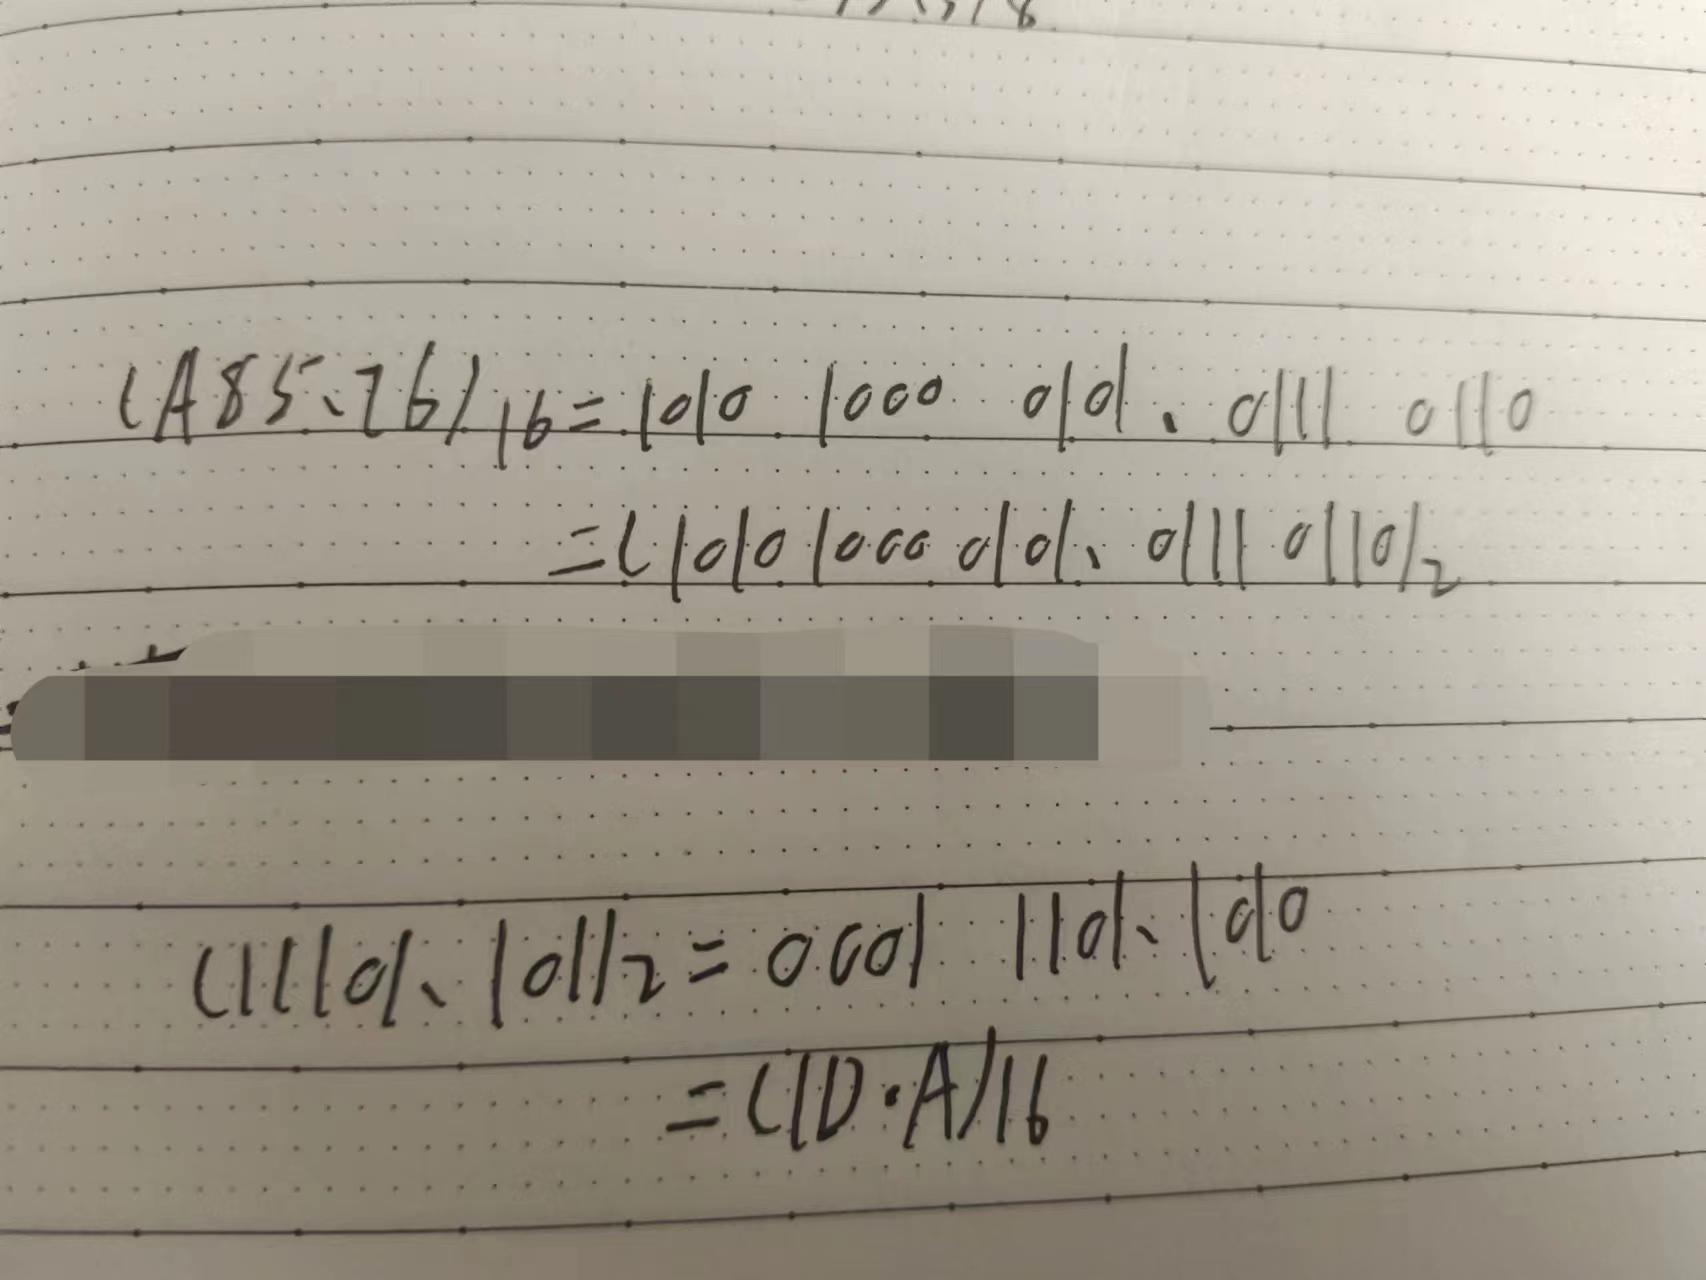 (A85、76)16=1010 1000 0101. 0111 0110
=(1010 1000 0101、0111 0110)2
(11101、101)2=0001 1101、1010
=(1D·A)16